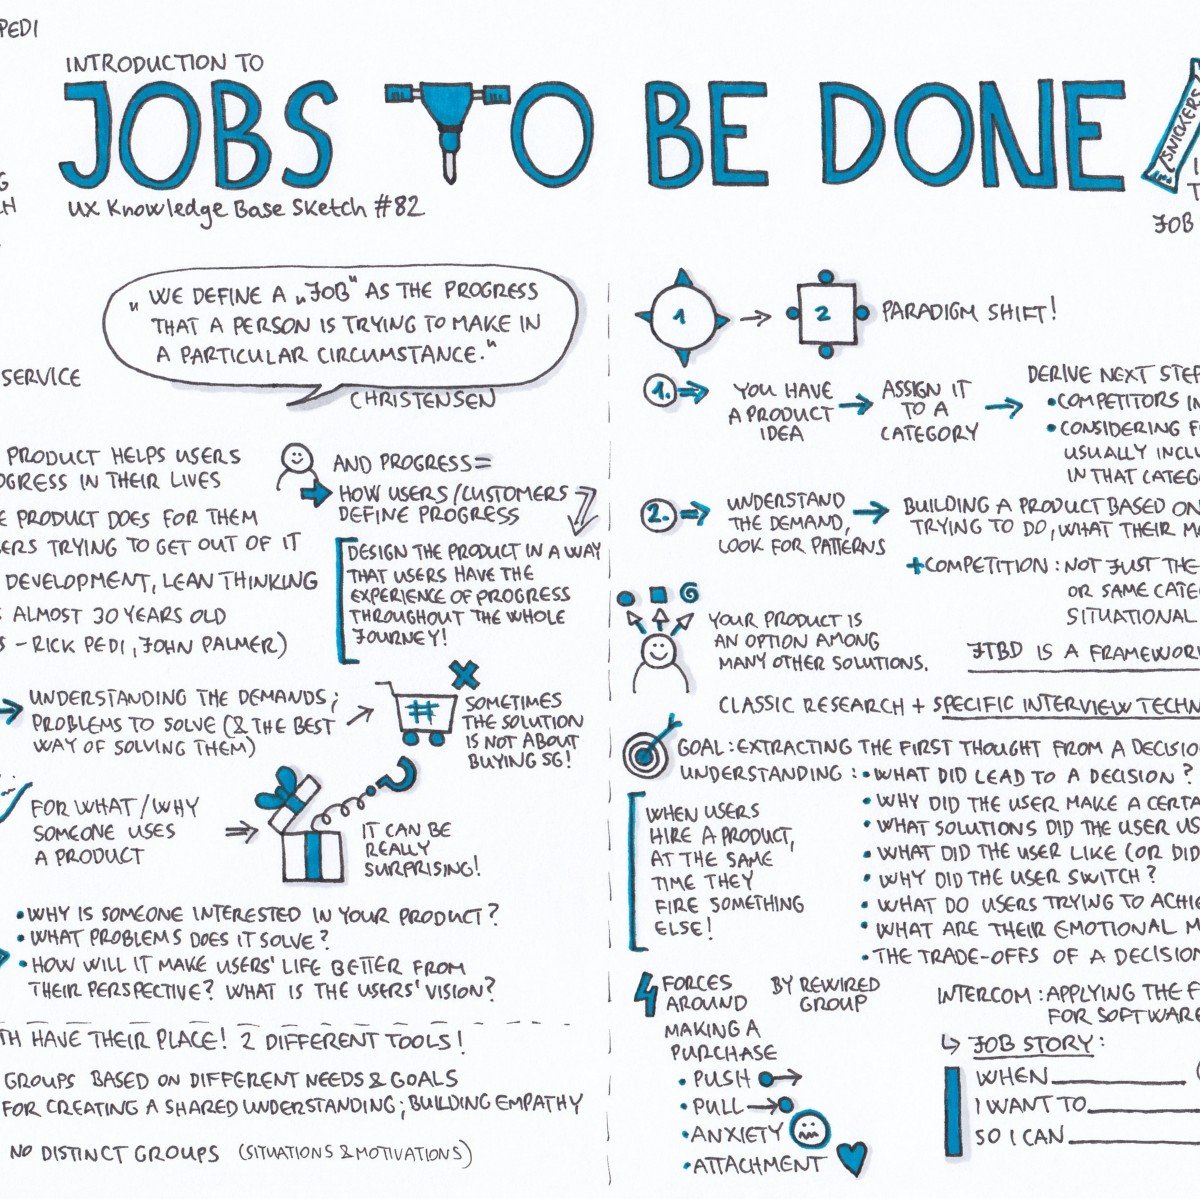 PEDI
INTRODUCTION TO
JOBS TO BE DONE
SNICKERS
UX Knowledge Base Sketch #82
JOB
„WE DEFINE A „JOB" AS THE PROGRESS
THAT A PERSON IS TRYING TO MAKE IN
A PARTICULAR CIRCUMSTANCE."
CHRISTENSEN
SERVICE
PRODUCT HELPS USERS
OGRESS IN THEIR LIVES
E PRODUCT DOES FOR THEM
ERS TRYING TO GET OUT OF IT
DEVELOPMENT, LEAN THINKING
S ALMOST 30 YEARS OLD
S - RICK PEDI, JOHN PALMER)
AND PROGRESS=
HOW USERS/CUSTOMERS
DEFINE PROGRESS
DESIGN THE PRODUCT IN A WAY
THAT USERS HAVE THE
EXPERIENCE OF PROGRESS
THROUGHOUT THE WHOLE
JOURNEY!
UNDERSTANDING THE DEMANDS;
PROBLEMS TO SOLVE (& THE BEST
WAY OF SOLVING THEM)
#
SOMETIMES
THE SOLUTION
IS NOT ABOUT
BUYING SG!
FOR WHAT/WHY
SOMEONE USES
A PRODUCT
IT CAN BE
REALLY
SURPRISING!
•WHY IS SOMEONE INTERESTED IN YOUR PRODUCT?
•WHAT PROBLEMS DOES IT SOLVE?
•HOW WILL IT MAKE USERS' LIFE BETTER FROM
THEIR PERSPECTIVE? WHAT IS THE USERS' VISION?
TH HAVE THEIR PLACE! 2 DIFFERENT TOOLS!
GROUPS BASED ON DIFFERENT NEEDS & GOALS
FOR CREATING A SHARED UNDERSTANDING; BUILDING EMPATHY
NO DISTINCT GROUPS (SITUATIONS & MOTIVATIONS)
1 → 2 PARADIGM SHIFT!
1. YOU HAVE
A PRODUCT
IDEA
ASSIGN IT
TO A
CATEGORY
DERIVE NEXT STEP
•COMPETITORS IN
•CONSIDERING F
USUALLY INCLU
IN THAT CATEG
2. UNDERSTAND
THE DEMAND,
LOOK FOR PATTERNS
BUILDING A PRODUCT BASED ON
TRYING TO DO, WHAT THEIR M
+COMPETITION: NOT JUST THE
OR SAME CATE
SITUATIONAL
YOUR PRODUCT IS
AN OPTION AMONG
MANY OTHER SOLUTIONS.
JTBD IS A FRAMEWORK
CLASSIC RESEARCH + SPECIFIC INTERVIEW TECHN
GOAL: EXTRACTING THE FIRST THOUGHT FROM A DECISIO
UNDERSTANDING: •WHAT DID LEAD TO A DECISION?
•WHY DID THE USER MAKE A CERTA
•WHAT SOLUTIONS DID THE USER US
•WHAT DID THE USER LIKE (OR DID
•WHY DID THE USER SWITCH?
•WHAT DO USERS TRYING TO ACHIE
•WHAT ARE THEIR EMOTIONAL M
•THE TRADE-OFFS OF A DECISION
WHEN USERS
HIRE A PRODUCT,
AT THE SAME
TIME THEY
FIRE SOMETHING
ELSE!
4 FORCES
AROUND
MAKING A
PURCHASE
BY REWIRED
GROUP
•PUSH
•PULL
•ANXIETY
•ATTACHMENT
INTERCOM: APPLYING THE F
FOR SOFTWARE
JOB STORY:
WHEN
I WANT TO
SO I CAN